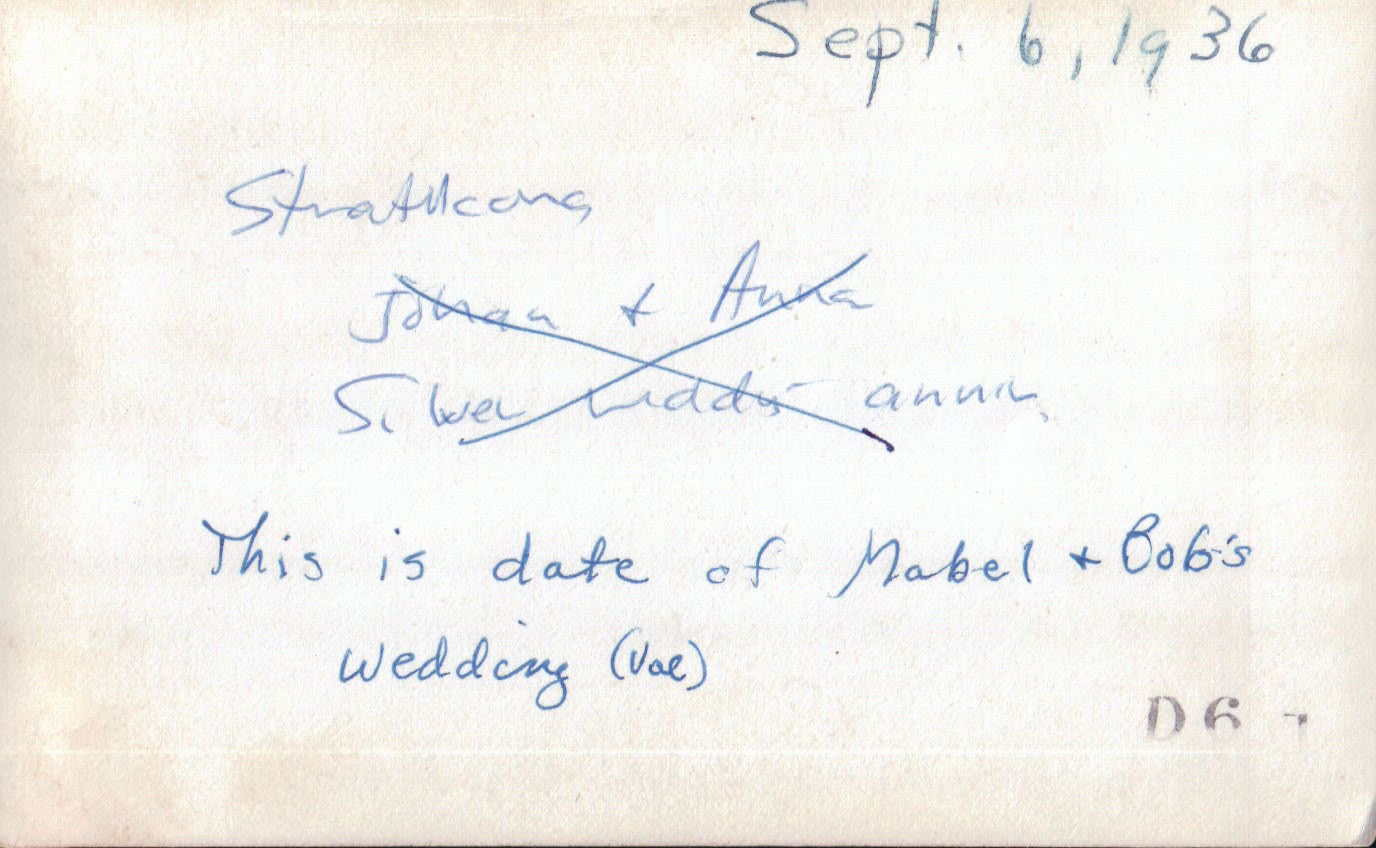 Sept. 6, 1936
Strathcona
Johan + Anna
Silver wedding anniv.
This is date of Mabel + Bob's
wedding (Val)
D6 -